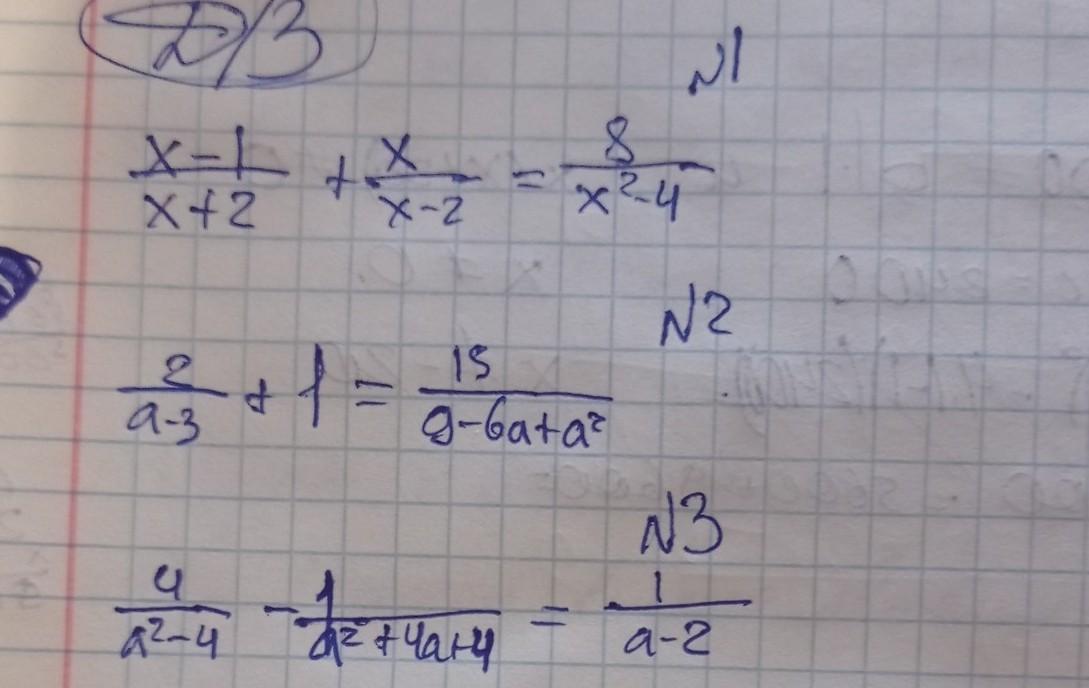 Д/З
N1
x-1/x+2 + x/x-2 = 8/x²-4
N2
2/a-3 + 1 = 15/9-6a+a²
N3
4/a²-4 - 1/a²+4a+4 = 1/a-2